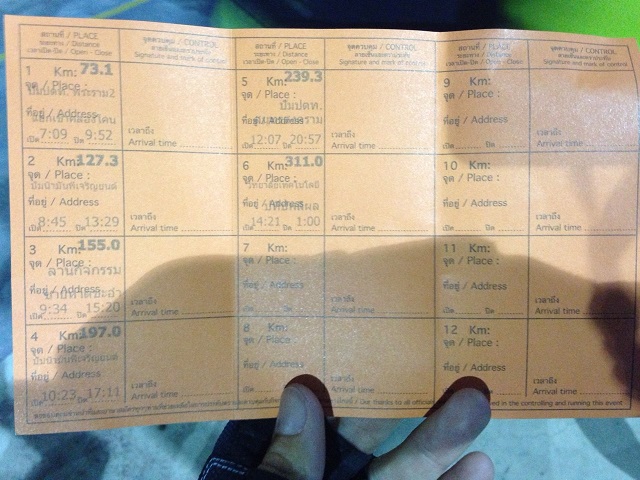 สถานที่ / PLACE
ระยะทาง / Distance
เวลาเปิด-ปิด / Open - Close
จุดควบคุม / CONTROL
Signature and mark of control
สถานที่ / PLACE
ระยะทาง / Distance
เวลาเปิด-ปิด / Open - Close
จุดควบคุม / CONTROL
Signature and mark of control
สถานที่ / PLACE
ระยะทาง / Distance
เวลาเปิด-ปิด / Open - Close
จุดควบคุม / CONTROL
Signature and mark of control
1 Km: 73.1
จุด / Place :
ปั๊มปตท. พระราม2
ที่อยู่ / Address
เปิด 7:09 ปิด 9:52
เวลาถึง
Arrival time
2 Km: 127.3
จุด / Place :
ปั๊มน้ำมันพีเจริญยนต์
ที่อยู่ / Address
เปิด 8:45 ปิด 13:29
เวลาถึง
Arrival time
3 Km: 155.0
จุด / Place :
ลานกิจกรรม
ที่อยู่ / Address
เปิด 9:34 ปิด 15:20
เวลาถึง
Arrival time
4 Km: 197.0
จุด / Place :
ปั๊มน้ำมันพีเจริญยนต์
ที่อยู่ / Address
เปิด 10:23 ปิด 17:11
เวลาถึง
Arrival time
5 Km: 239.3
จุด / Place :
ปั๊มปตท.
ที่อยู่ / Address
เปิด 12:07 ปิด 20:57
เวลาถึง
Arrival time
6 Km: 311.0
จุด / Place :
วิทยาลัยเทคโนโลยี
ที่อยู่ / Address
เปิด 14:21 ปิด 1:00
เวลาถึง
Arrival time
7 Km:
จุด / Place :
ที่อยู่ / Address
เปิด ปิด
เวลาถึง
Arrival time
8 Km:
จุด / Place :
ที่อยู่ / Address
เปิด
เวลาถึง
Arrival time
9 Km:
จุด / Place :
ที่อยู่ / Address
เปิด ปิด
เวลาถึง
Arrival time
10 Km:
จุด / Place :
ที่อยู่ / Address
เปิด ปิด
เวลาถึง
Arrival time
11 Km:
จุด / Place :
ที่อยู่ / Address
เปิด ปิด
เวลาถึง
Arrival time
12 Km:
จุด / Place :
ที่อยู่ / Address
เวลาถึง
Arrival time
thanks to all official in the controlling and running this event